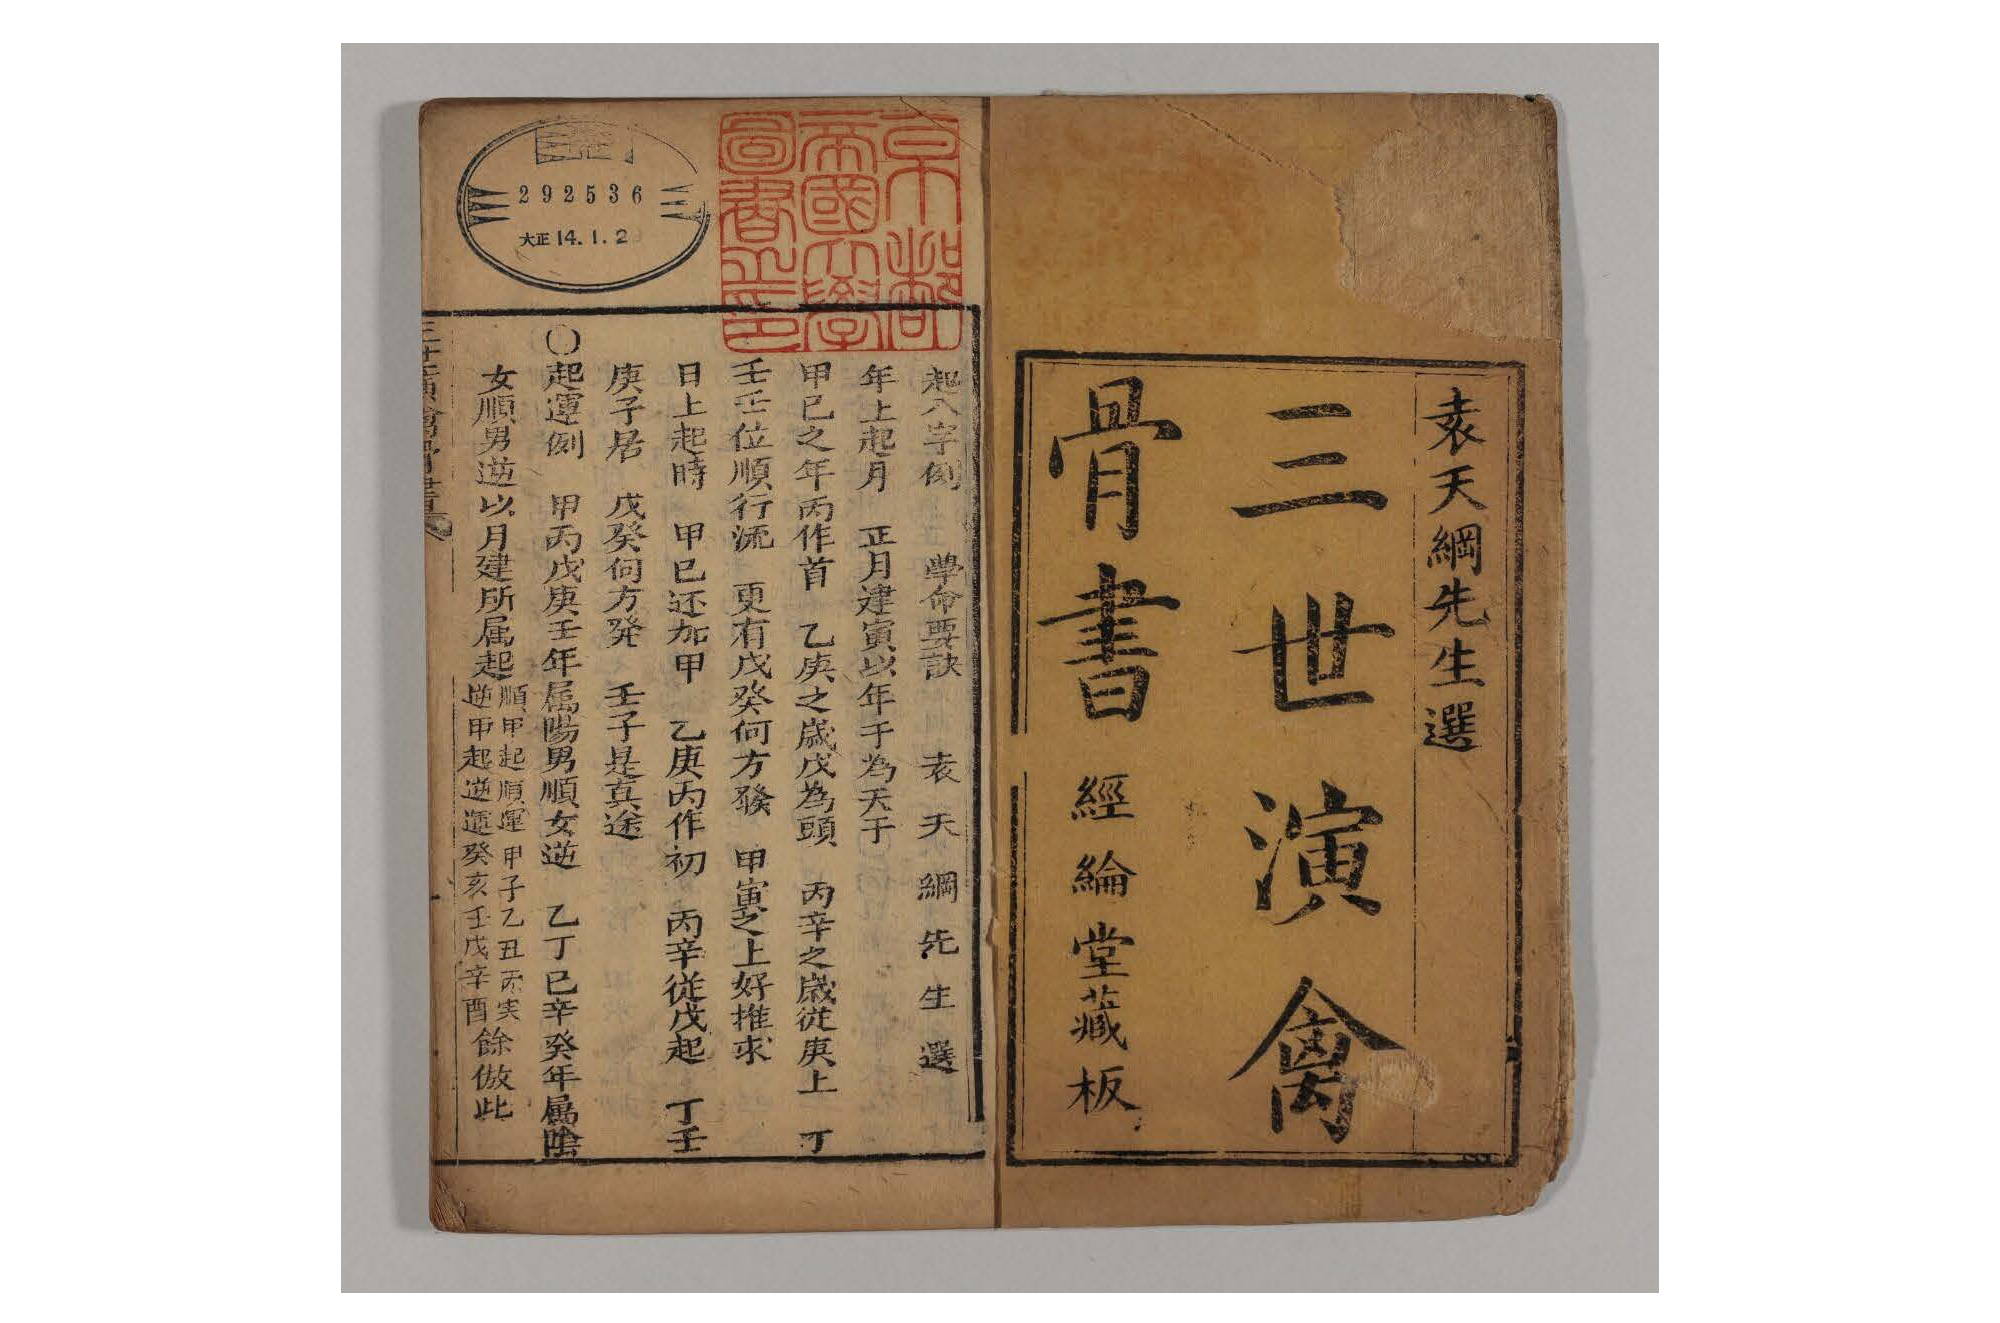 袁天綱先生選
三世演禽
骨書
經綸堂藏板
京都
帝國大學
圖書之印
292536
大正14.1.2
起八字例 學命要訣 袁天綱先生選
年上起月 正月建寅以年干為天干
甲己之年丙作首 乙庚之歲戊為頭 丙辛之歲從庚上 丁
壬壬位順行流 更有戊癸何方發 甲寅之上好推求
日上起時 甲己还加甲 乙庚丙作初 丙辛從戊起 丁壬
庚子居 戊癸何方発 壬子是真途
〇起運例 甲丙戊庚壬年属陽男順女逆 乙丁己辛癸年属陰
女順男逆以月建所属起
順甲起順運甲子乙丑丙寅
逆甲起逆運癸亥壬戌辛酉
餘倣此
三世演禽骨書